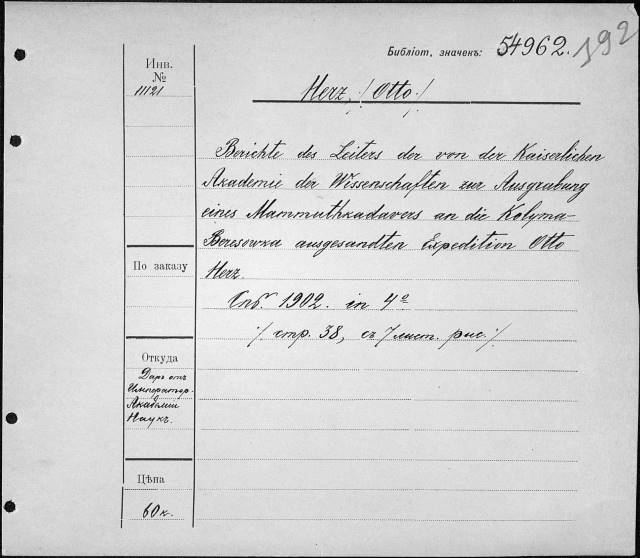 Библіот, значекъ: 54962. 192
Инв.
№
11121
Herz, /Otto/
Berichte des Leiters der von der Kaiserlichen
Akademie der Wissenschaften zur Ausgrabung
eines Mammuthkadavers an die Kolyma-
Beresowka ausgesandten Expedition Otto
Herz.
Спб. 1902. in 4º
/. стр. 38, съ 7 лист. рис./.
По заказу
Откуда
Даръ отъ
Император.
Академіи
Наукъ.
Цѣна
60 к.